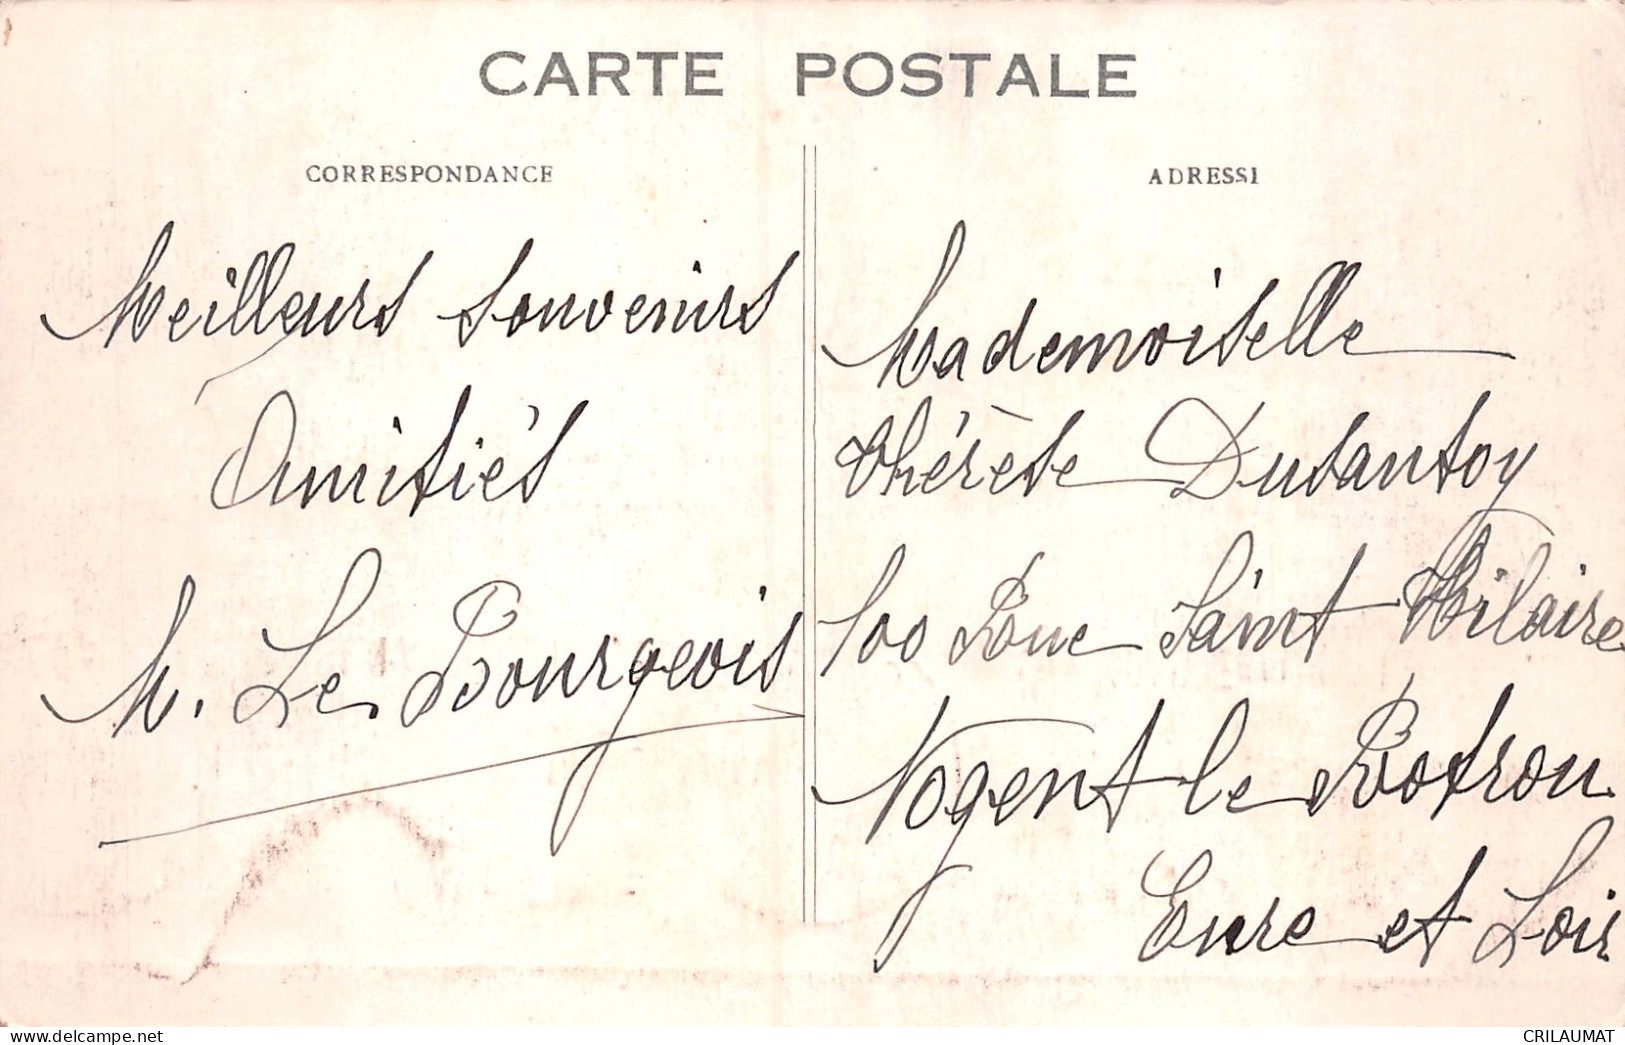 CARTE POSTALE
CORRESPONDANCE
Meilleurs souvenirs
Amitiés
M. Le Bourgeois
ADRESSE
Mademoiselle
Thérèse Dusantoy
100 Rue Saint Hilaire
Nogent le Rotrou
Eure et Loir
www.delcampe.net
CRILAUMAT